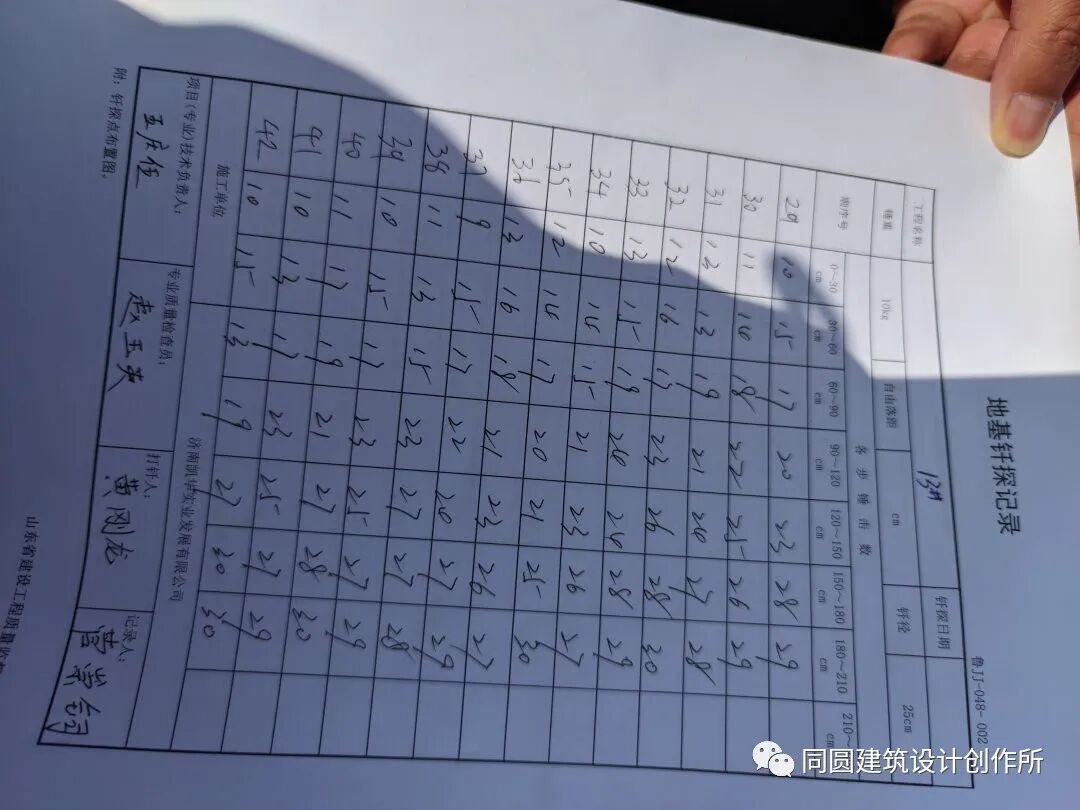 鲁JJ-048-002
地基钎探记录
工程名称 13# 钎探日期
锤重 10kg 自由落距 cm 钎径 25cm
顺序号 各步锤击数
0~30 cm 30~60 cm 60~90 cm 90~120 cm 120~150 cm 150~180 cm 180~210 cm 210~ cm
29 10 15 17 20 23 28 29
30 11 18 22 25 26 29
31 12 13 19 21 27 28
32 12 16 17 23 26 28 30
33 13 15 19 28 29
34 10 15 21 23 26 27
35 12 17 20 21 25 30
36 13 16 18 21 23 26 27
37 9 15 17 22 27 29
38 11 13 15 23 27 27 28
39 10 15 17 23 25 27 29
40 11 17 19 21 27 28 30
41 10 13 17 23 25 27 29
42 10 15 13 19 27 30 30
施工单位 济南凯华实业发展有限公司
项目(专业)技术负责人: 专业质量检查员: 打钎人: 记录人:
王庆任 赵玉英 黄刚龙
附:钎探点布置图。
山东省建设工程质量监
同圆建筑设计创作所